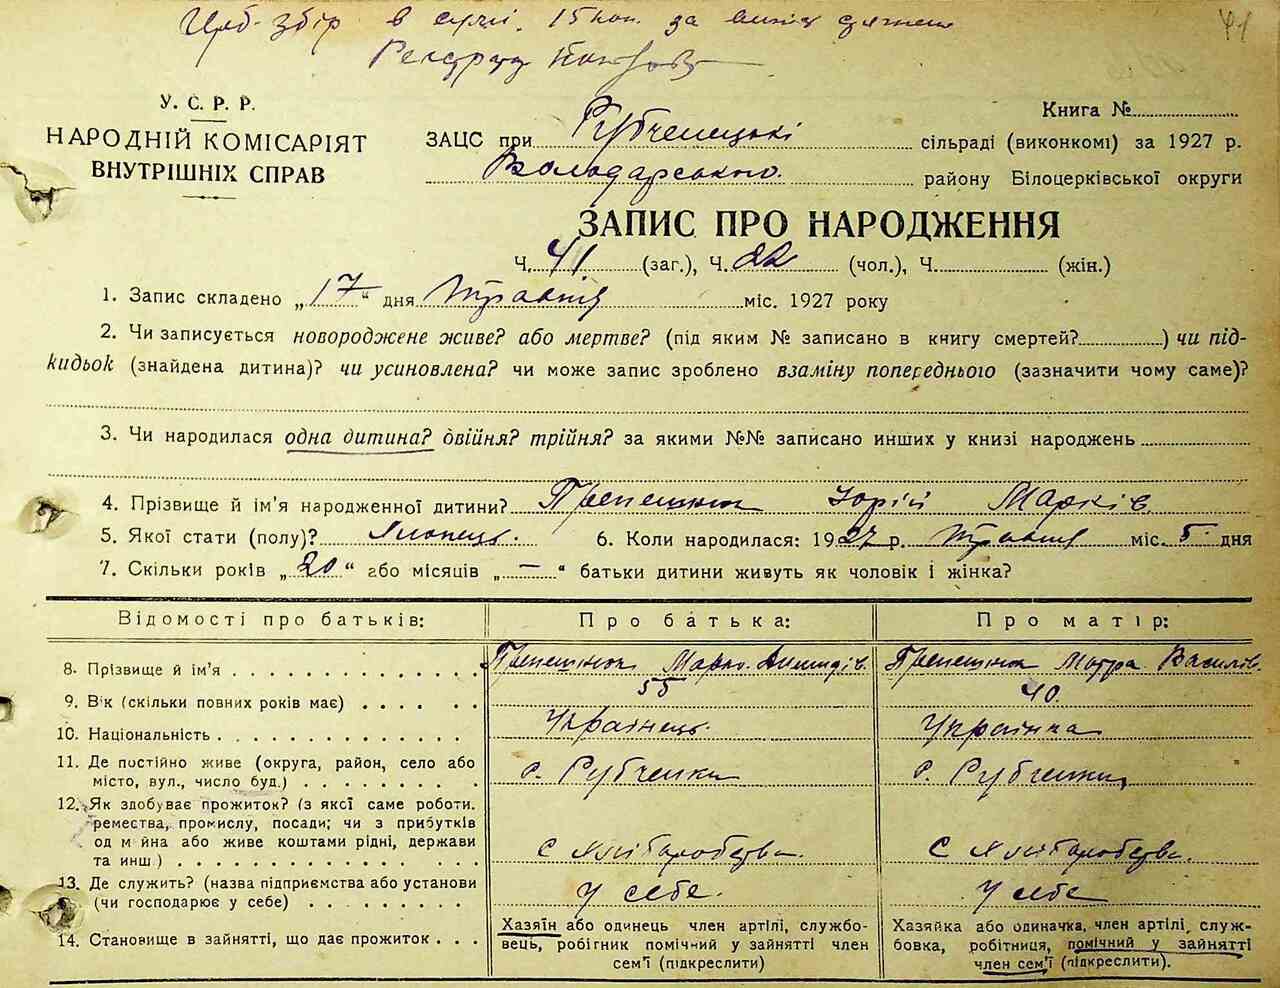 збір в сумі 15 коп. за
41
У. С. Р. Р.
НАРОДНІЙ КОМІСАРІЯТ
ВНУТРІШНІХ СПРАВ
Книга №
ЗАЦС при Рубченецькі сільраді (виконкомі) за 1927 р.
Володарського району Білоцерківської округи
ЗАПИС ПРО НАРОДЖЕННЯ
Ч. 41 (заг.), Ч. 22 (чол.), Ч. (жін.)
1. Запис складено „17“ дня Травня міс. 1927 року
2. Чи записується новороджене живе? або мертве? (під яким № записано в книгу смертей? ) чи під-
кидьок (знайдена дитина)? чи усиновлена? чи може запис зроблено взаміну попереднього (зазначити чому саме)?
3. Чи народилася одна дитина? двійня? трійня? за якими №№ записано инших у книзі народжень
4. Прізвище й ім'я народженної дитини? Юрій Марків
5. Якої стати (полу)? Хлопець. 6. Коли народилася: 1927 р. Травня міс. 5 дня
7. Скільки років „20“ або місяців „—“ батьки дитини живуть як чоловік і жінка?
Відомості про батьків: Про батька: Про матір:
8. Прізвище й ім'я Марко Мотра Василів.
9. Вік (скільки повних років має) 55 40.
10. Національність Українець. Українка
11. Де постійно живе (округа, район, село або
місто, вул., число буд.) с. Рубченки с. Рубченки
12. Як здобуває прожиток? (з якої саме роботи.
ремества, промислу, посади; чи з прибутків
од майна або живе коштами рідні, держави
та инш.) С хліборобства. С хліборобства.
13. Де служить? (назва підприємства або установи
(чи господарює у себе) У себе. У себе
14. Становище в зайнятті, що дає прожиток
Хазяїн або одинець член артілі, службо-
вець, робігник помічний у зайнятті член
сем'ї (підкреслити)
Хазяйка або одиначка, член артілі, служ-
бовка, робітниця, помічний у зайнятті
член сем'ї (підкреслити).